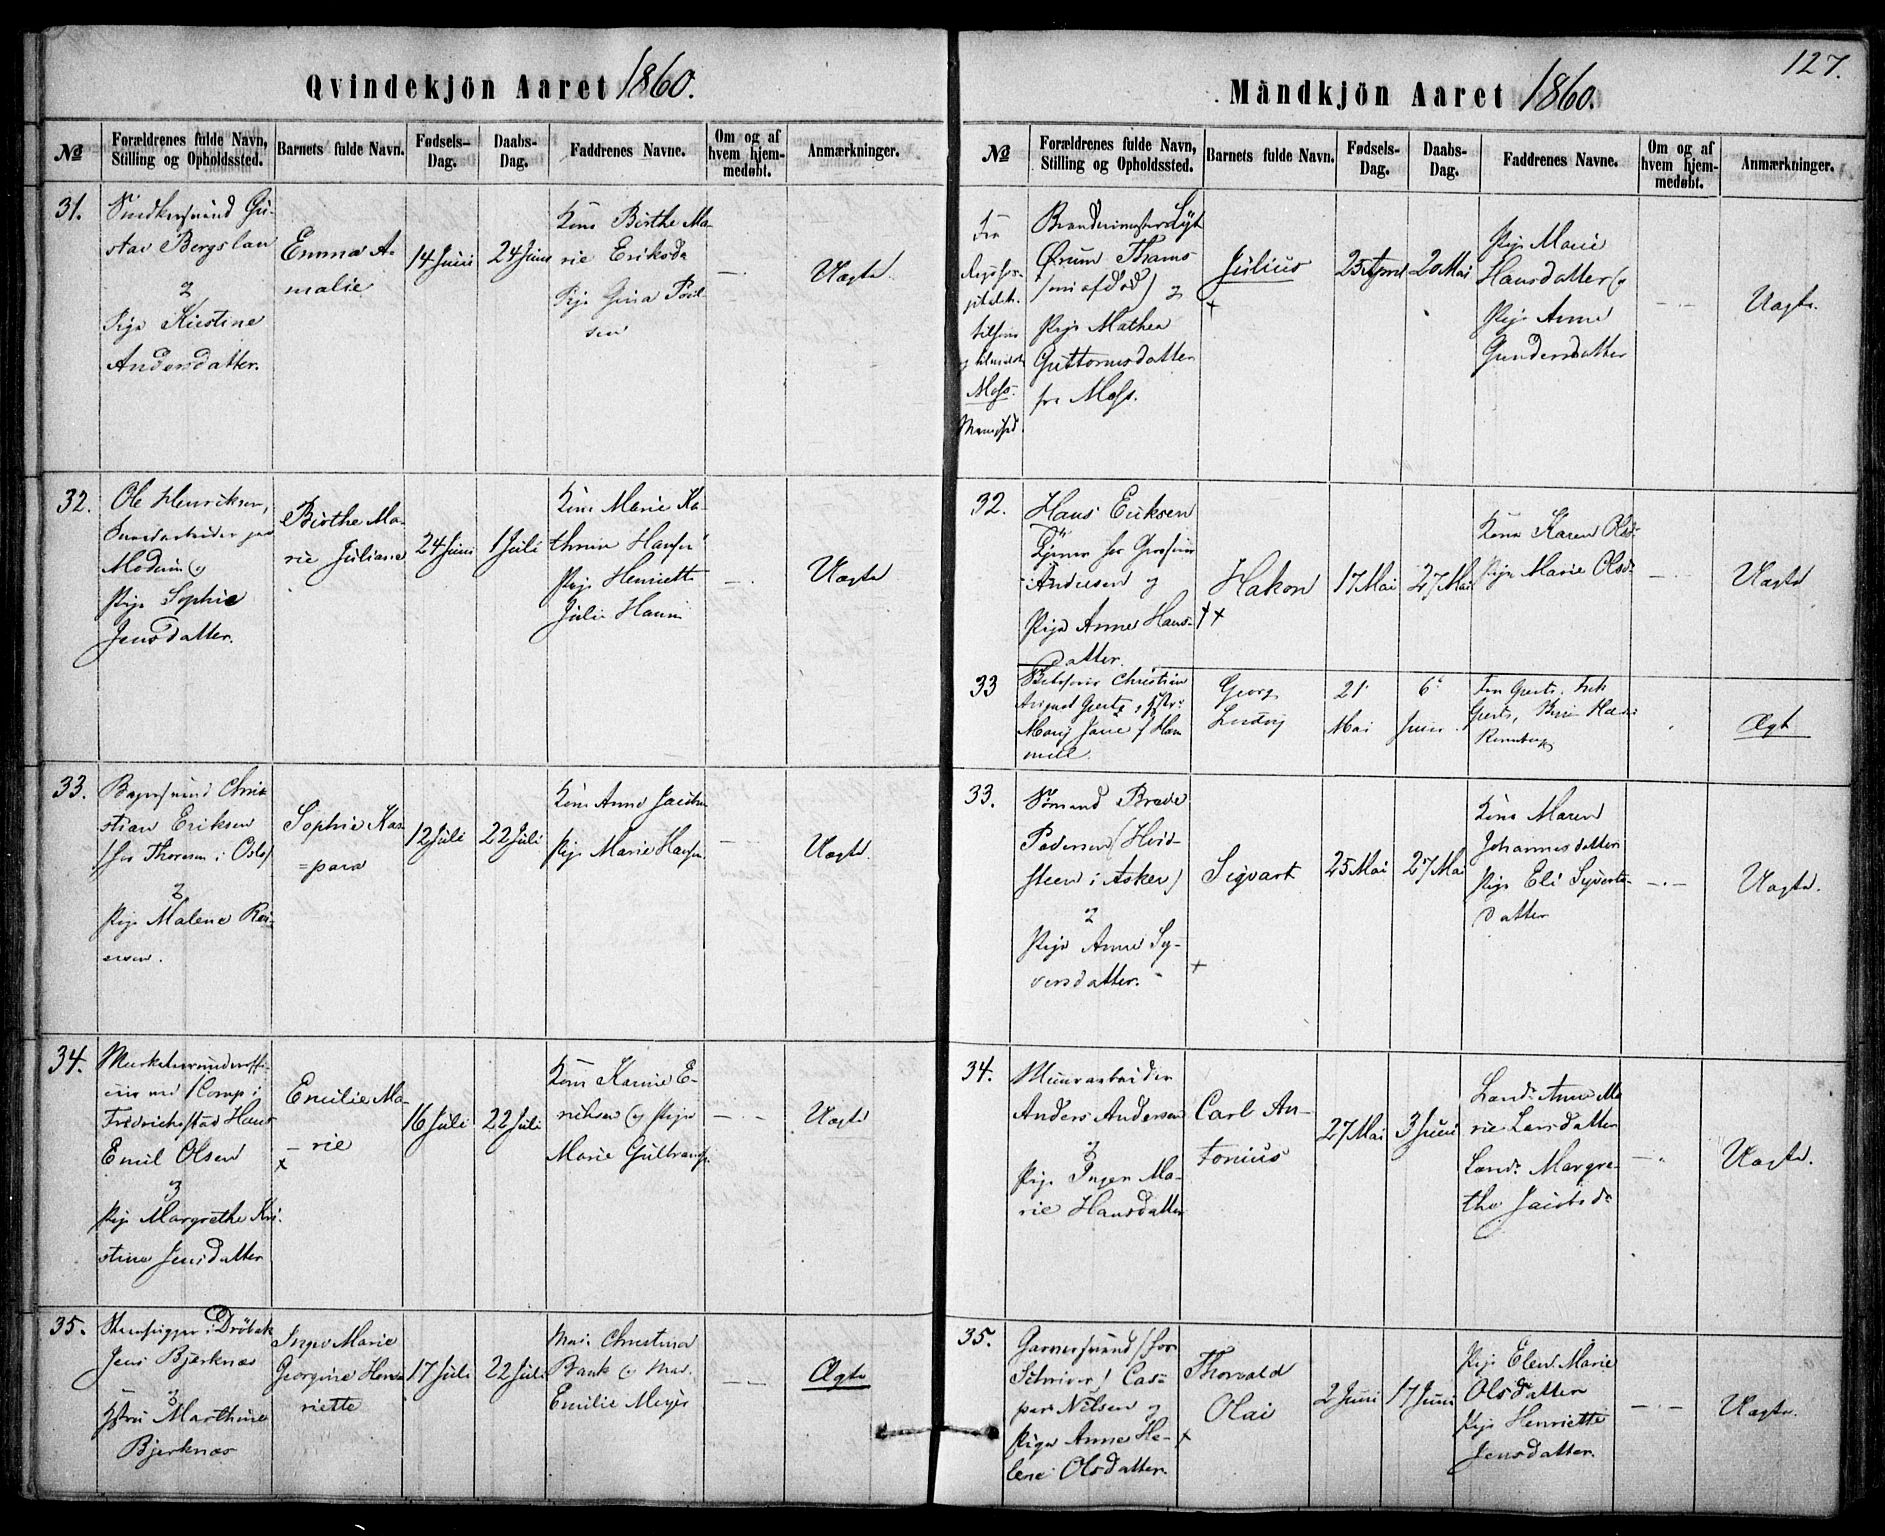 127.
Qvindekjön Aaret 1860.
№
Forældrenes fulde Navn,
Stilling og Opholdssted.
Barnets fulde Navn.
Fødsels-
Dag.
Daabs-
Dag.
Faddrenes Navne.
Om og af
hvem hjem-
medøbt.
Anmærkninger.
31.
Snedkersvend Gu-
stav Bergslan
&
Pige Kirstine
Andersdatter.
Emma A-
malie
14 Juni
24 Juni
Kone Birthe Ma-
rie Eriksd.
Pige Gina
Uægte
32.
Ole Henriksen,
paa
Modum og
Pige Sophie
Jensdatter.
Birthe Ma-
rie Juliane
24 Juni
1 Juli
Kone Marie Ka-
thrine Hansen
Pige Henriette
Julie
Uægte
33.
Bagersvend Chri-
stian Eriksen
(for Thoresen i Oslo)
&
Pige Malene Rei-
ersen.
Sophie Kas-
=para
12 Juli
22 Juli
Kone Anne Jacobs.
Pige Marie Hansen
Uægte.
34.
Musketeerunderoffi-
ceer ved Comp i
Fredrichsstad Hans
Emil Olsen
&
Pige Margrethe Kri-
stine Jensdatter
Emilie Ma-
- rie
×
16 Juli
22 Juli
Kone Karine E-
riksen og Pige
Marie Gulbrands.
Uægte
35.
i Dröbak
Jens Bjerknæs
&
Hstru Marthine
Bjerknæs
Inga Marie
Georgine Hen-
riette
17 Juli
22 Juli
Mad. Christina
Bank og Mad.
Emilie Meyer
Ægte
Mandkjön Aaret 1860.
№
Forældrenes fulde Navn,
Stilling og Opholdssted.
Barnets fulde Navn.
Fødsels-
Dag.
Daabs-
Dag.
Faddrenes Navne.
Om og af
hvem hjem-
medøbt.
Anmærkninger.
Fra
Moss.
Ørum Thams
(nu afdød) og
Pige Mathea
Guttormsdatter
fra Moss.
Julius
+
25 April
20 Mai
Pige Marie
Hansdatter og
Pige Anne
Gundersdatter
Uægte.
32.
Hans Eriksen
Tjener for
Andresen og
Pige Anne Hans-
datter.
Hakon
++
17 Mai
27 Mai
Kone Karen Olsd.
Pige Marie Olsd.
Uægte
33
Christian
August Gertz, Hstr.
Mary Jane f. Ham-
mell.
Georg
Ludvig
21
Mai
6
Juni
Fru Gertz,
Gertz,
Ægt
33.
Sømand Brede
Pedersen (Hvid-
steen i Asker)
&
Pige Anne Sy-
versdatter.
+
Sigvart
25 Mai
27 Mai
Kone Maren
Johannesdatter
Pige Eli Syverts-
datter
Uægte.
34.
Muurarbeider
Anders Andersen
&
Pige Inger Ma-
rie Hansdatter
Carl An-
tonius
27 Mai
3 Juni
Anne Ma-
rie Larsdatter
Margre-
the Jacobsd.
Uægte.
35.
Garversvend (for
Schriver) Cas-
per Nilsen og
Pige Anne He-
lene Olsdatter.
+
Thorvald
Olai
2 Juni
17 Juni
Pige Elen Marie
Olsdatter
Pige Henriette
Jensdatter.
Uægte.